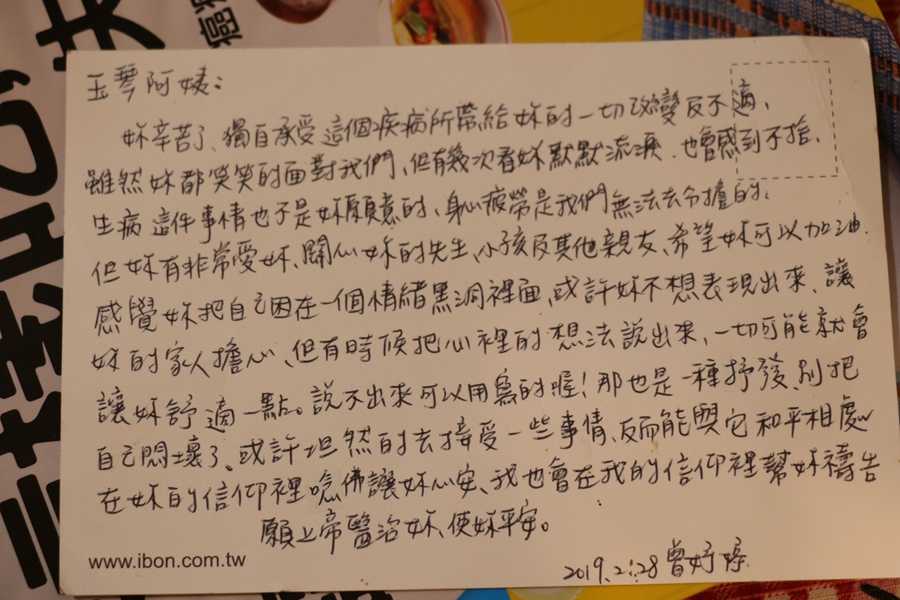 玉琴阿姨：
妳辛苦了、獨自承受這個疾病所帶給妳的一切改變及不適、
雖然妳都笑笑的面對我們、但有幾次看妳默默流淚、也會感到不捨、
生病這件事情也不是妳願意的、身心疲勞是我們無法去分擔的、
但妳有非常愛妳、關心妳的先生、小孩及其他親友、希望妳可以加油、
感覺妳把自己困在一個情緒黑洞裡面、或許妳不想表現出來、讓
妳的家人擔心、但有時候把心裡的想法說出來、一切可能就會
讓妳舒適一點。說不出來可以用寫的喔！那也是一種抒發、別把
自己悶壞了、或許坦然的去接受一些事情、反而能與它和平相處
在妳的信仰裡唸佛讓妳心安、我也會在我的信仰裡幫妳禱告
願上帝醫治妳、使妳平安。
www.ibon.com.tw
2019.2.28 曾婷